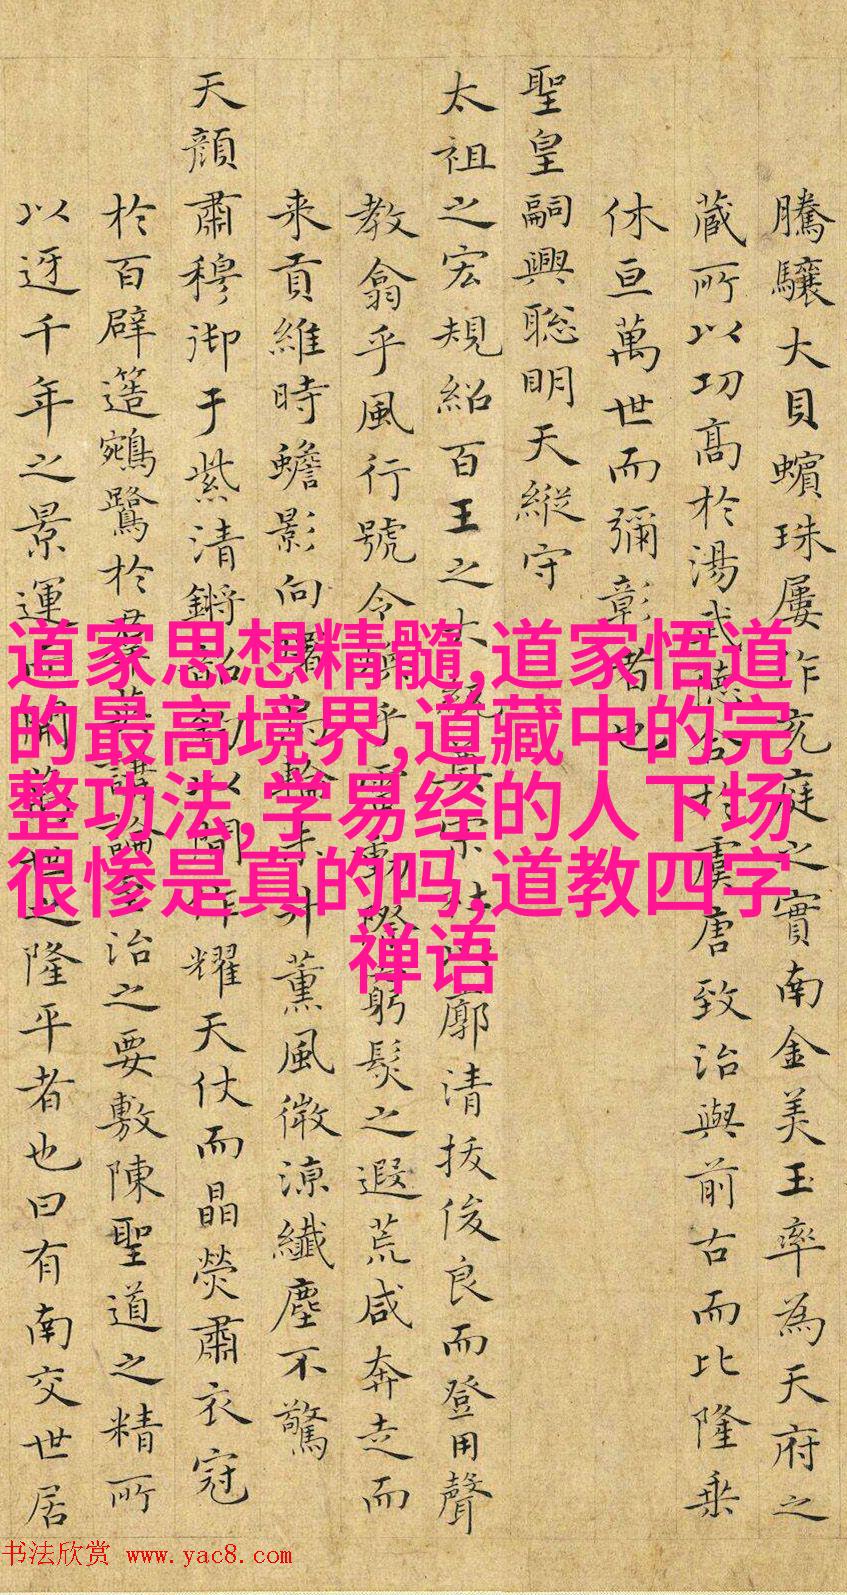 騰驤大貝蠙珠屢作充庭之實南金美玉率為天府之
蔵所以功髙於湯武德合於虞唐致治與前古而比隆乗
休亘萬世而彌彰者也
聖皇嗣興聡明天縱守
太祖之宏規紹百王之大統廓清拔俊良而登用聲
教翕乎風行號令乎躬髮之遐荒咸奔走而
来貢維時蟾影向升薰風微涼纎塵不驚
天顔肅穆御于紫清鏘以間作耀天仗而晶熒肅衣冠
於百辟簉鵷鷺於講論至治之要敷陳聖道之精所
以迓千年之景運而開之隆平者也曰有南交世居
道家思想精髓,道家悟道
的最高境界,道藏中的完
整功法,学易经的人下场
很惨是真的吗,道教四字
禅语
书法欣赏 www.yac8.com